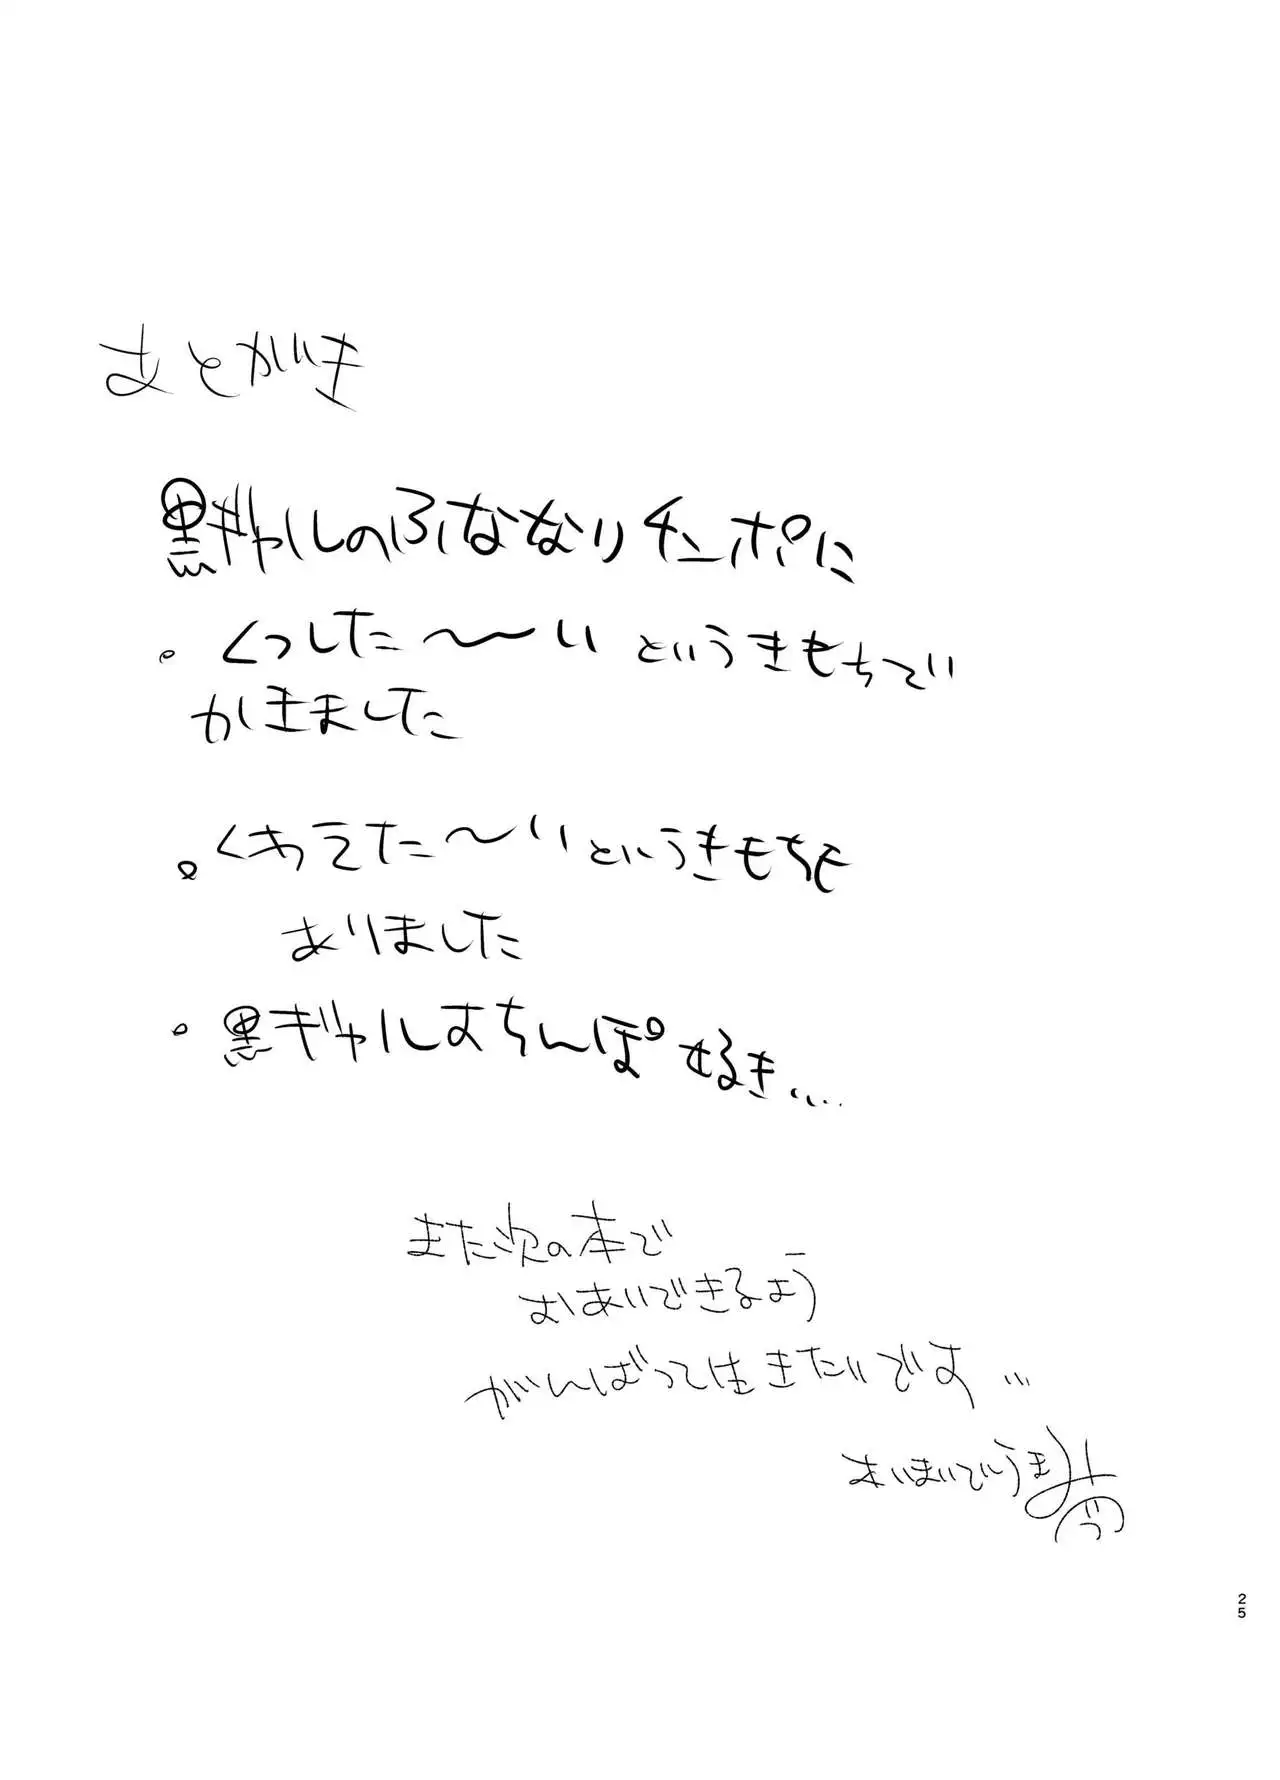 あとがき
黒ギャルのふたなりチンポに
・くっした〜〜い というきもちで
かきました
・くわえた〜いというきもちも
ありました
・黒ギャルおちんぽ好き…
また次の本で
おあいできるよう
がんばって生きたいです…
25